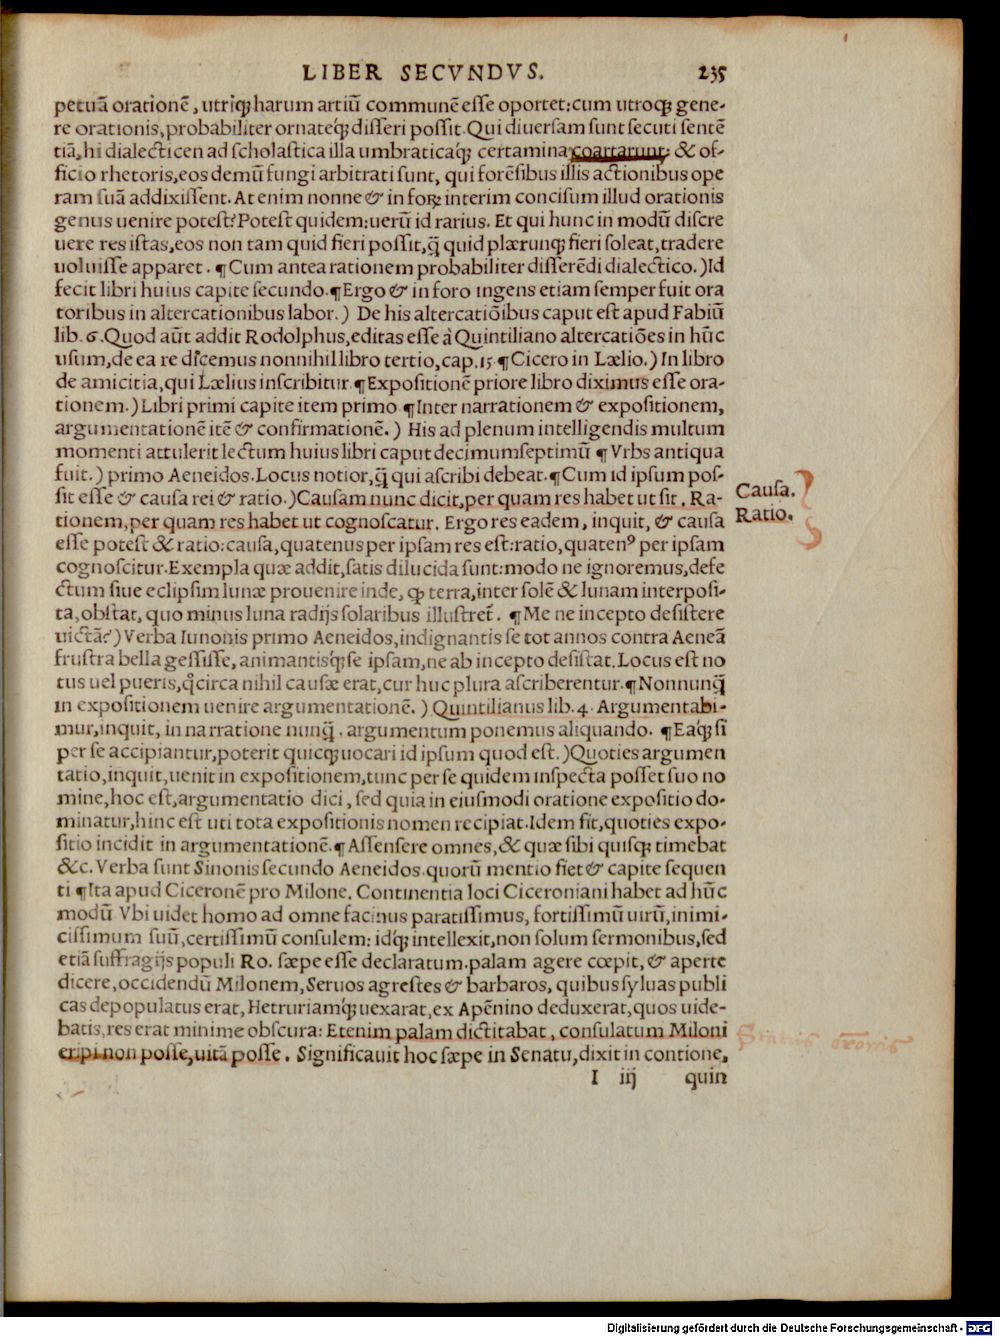 LIBER SECVNDVS. 235
petuã orationẽ, utriq; harum artiũ communẽ esse oportet: cum utroq; gene-
re orationis, probabiliter ornateq́; disseri possit. Qui diuersam sunt secuti sentẽ
tiã, hi dialecticen ad scholastica illa umbraticaq́; certamina coartarunt: & of-
ficio rhetoris, eos demũ fungi arbitrati sunt, qui forẽsibus illis actionibus ope
ram suã addixissent. At enim nonne & in foro interim concisum illud orationis
genus uenire potest? Potest quidem: uerũ id rarius. Et qui hunc in modũ discre
uere res istas, eos non tam quid fieri possit, q̃ quid plærunq; fieri soleat, tradere
uoluisse apparet. ¶ Cum antea rationem probabiliter disserẽdi dialectico.) Id
fecit libri huius capite secundo. ¶ Ergo & in foro ingens etiam semper fuit ora
toribus in altercationibus labor.) De his altercatiõibus caput est apud Fabiũ
lib. 6. Quod aũt addit Rodolphus, editas esse à Quintiliano altercatiões in hũc
usum, de ea re dicemus nonnihil libro tertio, cap. 15. ¶ Cicero in Lælio.) In libro
de amicitia, qui Lælius inscribitur. ¶ Expositionẽ priore libro diximus esse ora-
tionem.) Libri primi capite item primo. ¶ Inter narrationem & expositionem,
argumentationẽ itẽ & confirmationẽ.) His ad plenum intelligendis multum
momenti attulerit lectum huius libri caput decimumseptimũ ¶ Vrbs antiqua
fuit.) primo Aeneidos. Locus notior, q̃ qui ascribi debeat. ¶ Cum id ipsum pos-
sit esse & causa rei & ratio.) Causam nunc dicit, per quam res habet ut sit. Ra-
tionem, per quam res habet ut cognoscatur. Ergo res eadem, inquit, & causa
esse potest & ratio: causa, quatenus per ipsam res est: ratio, quatenꝰ per ipsam
cognoscitur. Exempla quæ addit, satis dilucida sunt: modo ne ignoremus, defe
ctum siue eclipsim lunæ prouenire inde, ꝙ terra, inter solẽ & lunam interposi-
ta, obstat, quo minus luna radijs solaribus illustret̃. ¶ Me ne incepto desistere
uictã?) Verba Iunonis primo Aeneidos, indignantis se tot annos contra Aeneã
frustra bella gessisse, animantisq́; se ipsam, ne ab incepto desistat. Locus est no
tus uel pueris, q̃circa nihil causæ erat, cur huc plura ascriberentur. ¶ Nonnunq̃
in expositionem uenire argumentationẽ.) Quintilianus lib. 4. Argumentabi-
mur, inquit, in narratione nunq̃. argumentum ponemus aliquando. ¶ Eaq́; si
per se accipiantur, poterit quicq; uocari id ipsum quod est.) Quoties argumen
tatio, inquit, uenit in expositionem, tunc per se quidem inspecta posset suo no
mine, hoc est, argumentatio dici, sed quia in eiusmodi oratione expositio do-
minatur, hinc est uti tota expositionis nomen recipiat. Idem fit, quoties expo-
sitio incidit in argumentationẽ. ¶ Assensere omnes, & quæ sibi quisq; timebat
&c. Verba sunt Sinonis secundo Aeneidos. quorũ mentio fiet & capite sequen
ti ¶ Ita apud Ciceronẽ pro Milone. Continentia loci Ciceroniani habet ad hũc
modũ Vbi uidet homo ad omne facinus paratissimus, fortissimũ uirũ, inimi-
cissimum suũ, certissimũ consulem: idq́; intellexit, non solum sermonibus, sed
etiã suffragijs populi Ro. sæpe esse declaratum. palam agere cœpit, & aperte
dicere, occidendũ Milonem, Seruos agrestes & barbaros, quibus syluas publi
cas depopulatus erat, Hetruriamq́; uexarat, ex Apẽnino deduxerat, quos uide-
batis, res erat minime obscura: Etenim palam dictitabat, consulatum Miloni
eripi non posse, uitã posse. Significauit hoc sæpe in Senatu, dixit in contione,
I iij quin
Causa.
Ratio.
Status
Digitalisierung gefördert durch die Deutsche Forschungsgemeinschaft - DFG